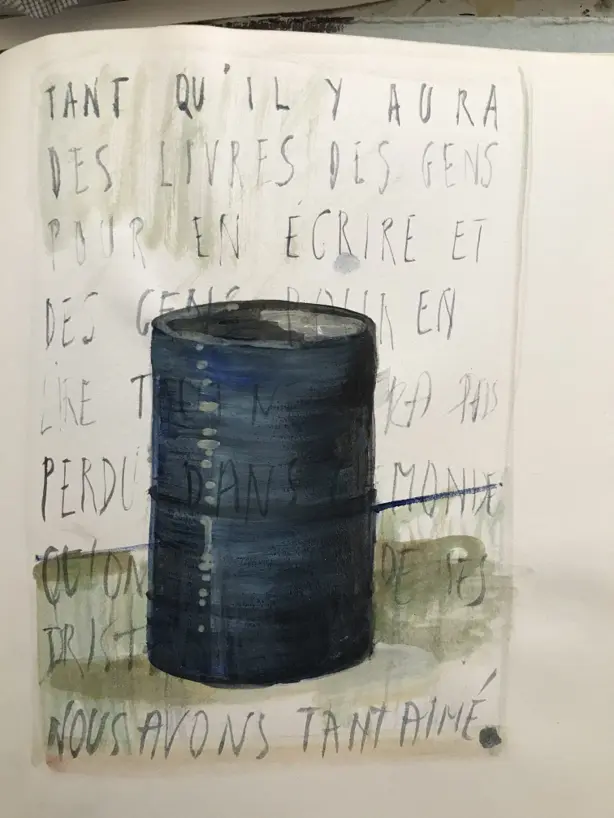 TANT QU'IL Y AURA
DES LIVRES DES GENS
POUR EN ÉCRIRE ET
DES GENS POUR EN
LIRE PAS
PERDU DANS CE MONDE
QU'ON DE SES
NOUS AVONS TANT AIMÉ.